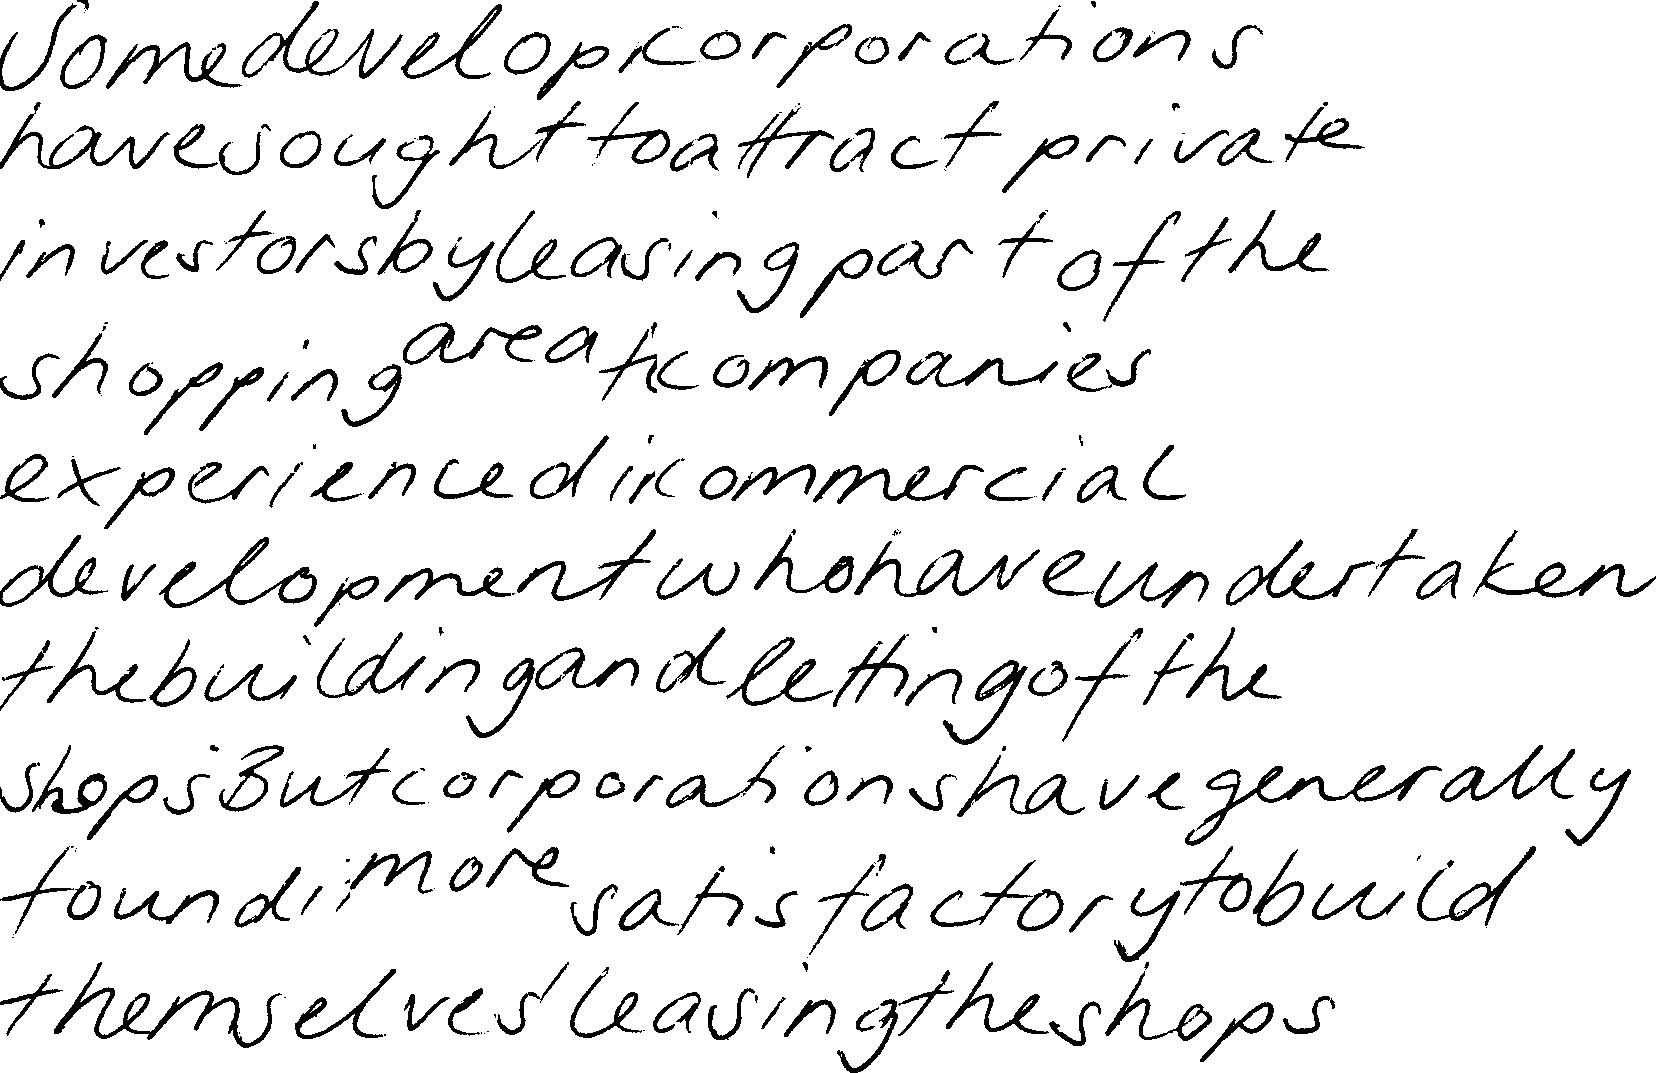 Some develop corporations
have sought to attract private
investors by leasing part of the
shopping area to companies
experienced in commercial
development who have undertaken
the building and letting of the
shops But corporations have generally
found it more satisfactory to build
themselves leasing the shops